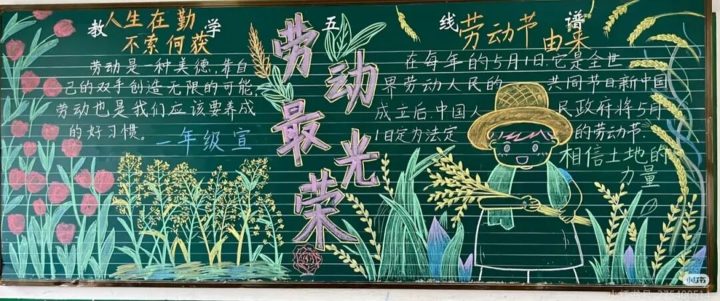 教 学 五 线 谱
人生在勤
不索何获
劳动是一种美德,靠自
己的双手创造无限的可能,
劳动也是我们应该要养成
的好习惯。
一年级宣
劳动
最光
荣
劳动节
由来
在每年的5月1日,它是全世
界劳动人民的 共同节日新中国
成立后,中国人 民政府将5月
1日定为法定 的劳动节
相信土地的
力量
小红书